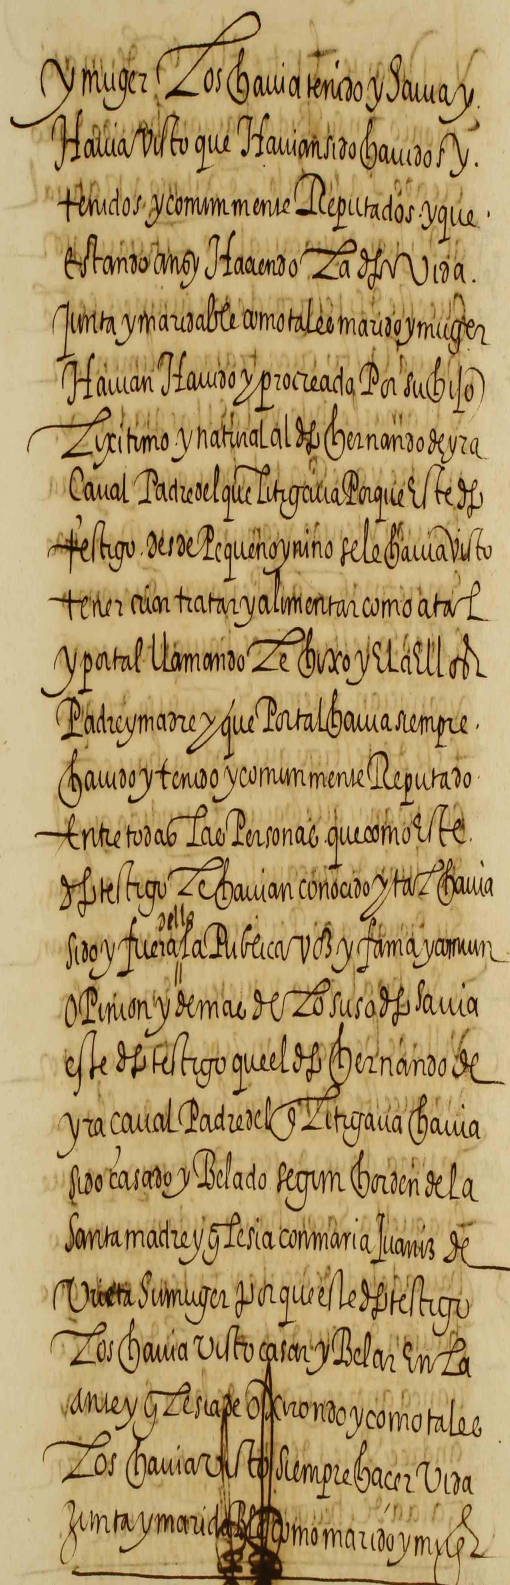 y muger Los havia tenido y Savia y
Havia Visto que Havian sido havidos y
tenidos y comunmente Reputados y que
estando ansy Haciendo La dha Vida
Junta y maridable como tales marido y muger
Havian Havido y procreado Por su hijo
Lixitimo y natural al dho hernando de yra
Caval Padre del que Litigava Porque Este dho
testigo desde Pequeño y niño se le havia Visto
tener criar tratar y alimentar como a tal
y por tal llamando Le hixo y El a Ellos
Padre y madre y que Por tal havia siempre
havido y tenido y comunmente Reputado
Entre todas Las Personas que como Este
dho testigo Le havian conocido y tal havia
sido y fuera dello La Publica voz y fama y comun
oPinion y demas de Lo suso dho Savia
este dho testigo que el dho hernando de
yra caval Padre del q Litigava havia
sido casado y Belado segun horden de la
Santa madre yglesia con maria Juaniz de
Urieta Su muger porque este dho testigo
Los havia visto casar y Belar En La
yglesia de y como tales
Los havia visto siempre hacer Vida
Junta y maridable como marido y muger